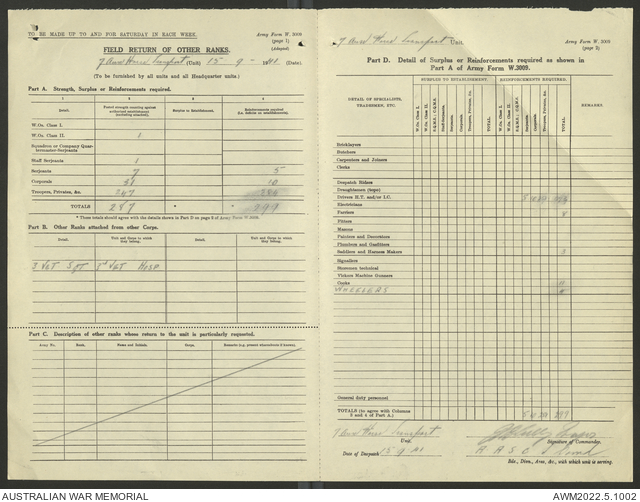 TO BE MADE UP TO AND FOR SATURDAY IN EACH WEEK.
Army Form W. 3009
(page 1)
(Adapted)
FIELD RETURN OF OTHER RANKS.
(Unit) 15 - 9 - 41 (Date).
(To be furnished by all units and all Headquarter units.)
Part A. Strength, Surplus or Reinforcements required.
1 2 3 4
Detail. Posted strength counting against authorized establishment (excluding attached). Surplus to Establishment. Reinforcements required (i.e. deficits on establishment).
W.Os. Class I.
W.Os. Class II. 1
Squadron or Company Quartermaster-Serjeants
Staff Serjeants 1
Serjeants 7 5
Corporals 31 10
Troopers, Privates, &c. 247 284
TOTALS 287 * * 299
* These totals should agree with the details shown in Part D on page 2 of Army Form W. 3009.
Part B. Other Ranks attached from other Corps.
Detail. Unit and Corps to which they belong. Detail. Unit and Corps to which they belong.
3 VET SGT 8th VET HOSP
Part C. Description of other ranks whose return to the unit is particularly requested.
Army No. Rank. Name and Initials. Corps. Remarks (e.g. present whereabouts if known).
Unit.
Army Form W. 3009
(page 2)
Part D. Detail of Surplus or Reinforcements required as shown in
Part A of Army Form W.3009.
DETAIL OF SPECIALISTS, TRADESMEN, ETC.
SURPLUS TO ESTABLISHMENT. REINFORCEMENTS REQUIRED.
W.Os. Class I. W.Os. Class II. S.Q.M.S.; C.Q.M.S. Staff Serjeants Serjeants Corporals Troopers, Privates, &c. TOTAL
W.Os. Class I. W.Os. Class II. S.Q.M.S.; C.Q.M.S. Serjeants Corporals Troopers, Privates, &c. TOTAL REMARKS.
Bricklayers
Butchers
Carpenters and Joiners
Clerks
Despatch Riders
Draughtsmen (topo)
Drivers H.T. and/or I.C.
Electricians
Farriers
Fitters
Masons
Painters and Decorators
Plumbers and Gasfitters
Saddlers and Harness Makers 3
Signallers
Storemen technical
Vickers Machine Gunners
Cooks
WHEELERS
General duty personnel
TOTALS (to agree with Columns 3 and 4 of Part A.) 5 10 284 299
Unit.
Date of Despatch 15 9 41
Signature of Commander.
R A S C
Bde., Divn., Area, &c., with which unit is serving.
AUSTRALIAN WAR MEMORIAL
AWM2022.5.1002